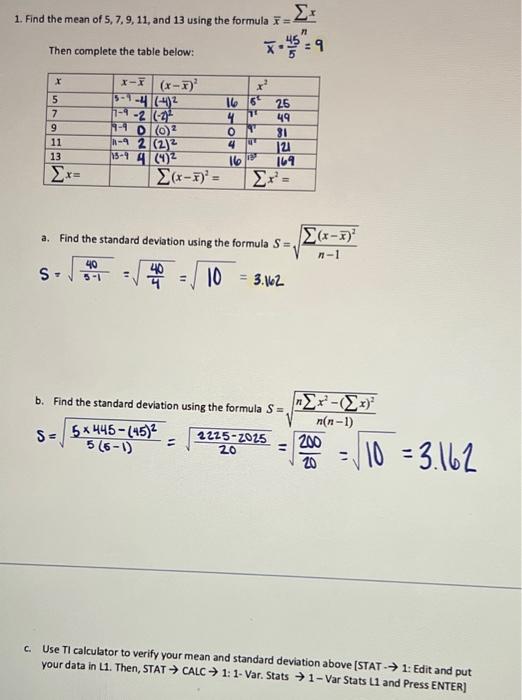 1. Find the mean of 5, 7, 9, 11, and 13 using the formula x̅ = ∑x / n
x̅ = 45/5 = 9
Then complete the table below:
x x-x̅ (x-x̅)² x²
5 5-9 -4 (-4)² 16 5² 25
7 7-9 -2 (-2)² 4 7² 49
9 9-9 0 (0)² 0 9² 81
11 11-9 2 (2)² 4 11² 121
13 13-9 4 (4)² 16 13² 169
∑x= ∑(x-x̅)² = ∑x² =
a. Find the standard deviation using the formula S = √(∑(x-x̅)² / n-1)
S = √(40 / 5-1) = √(40/4) = √10 = 3.162
b. Find the standard deviation using the formula S = √(n∑x²-(∑x)² / n(n-1))
S = √(5×445-(45)² / 5(5-1)) = √(2225-2025 / 20) = √(200/20) = √10 = 3.162
c. Use TI calculator to verify your mean and standard deviation above [STAT -→ 1: Edit and put
your data in L1. Then, STAT → CALC → 1: 1- Var. Stats → 1 – Var Stats L1 and Press ENTER]